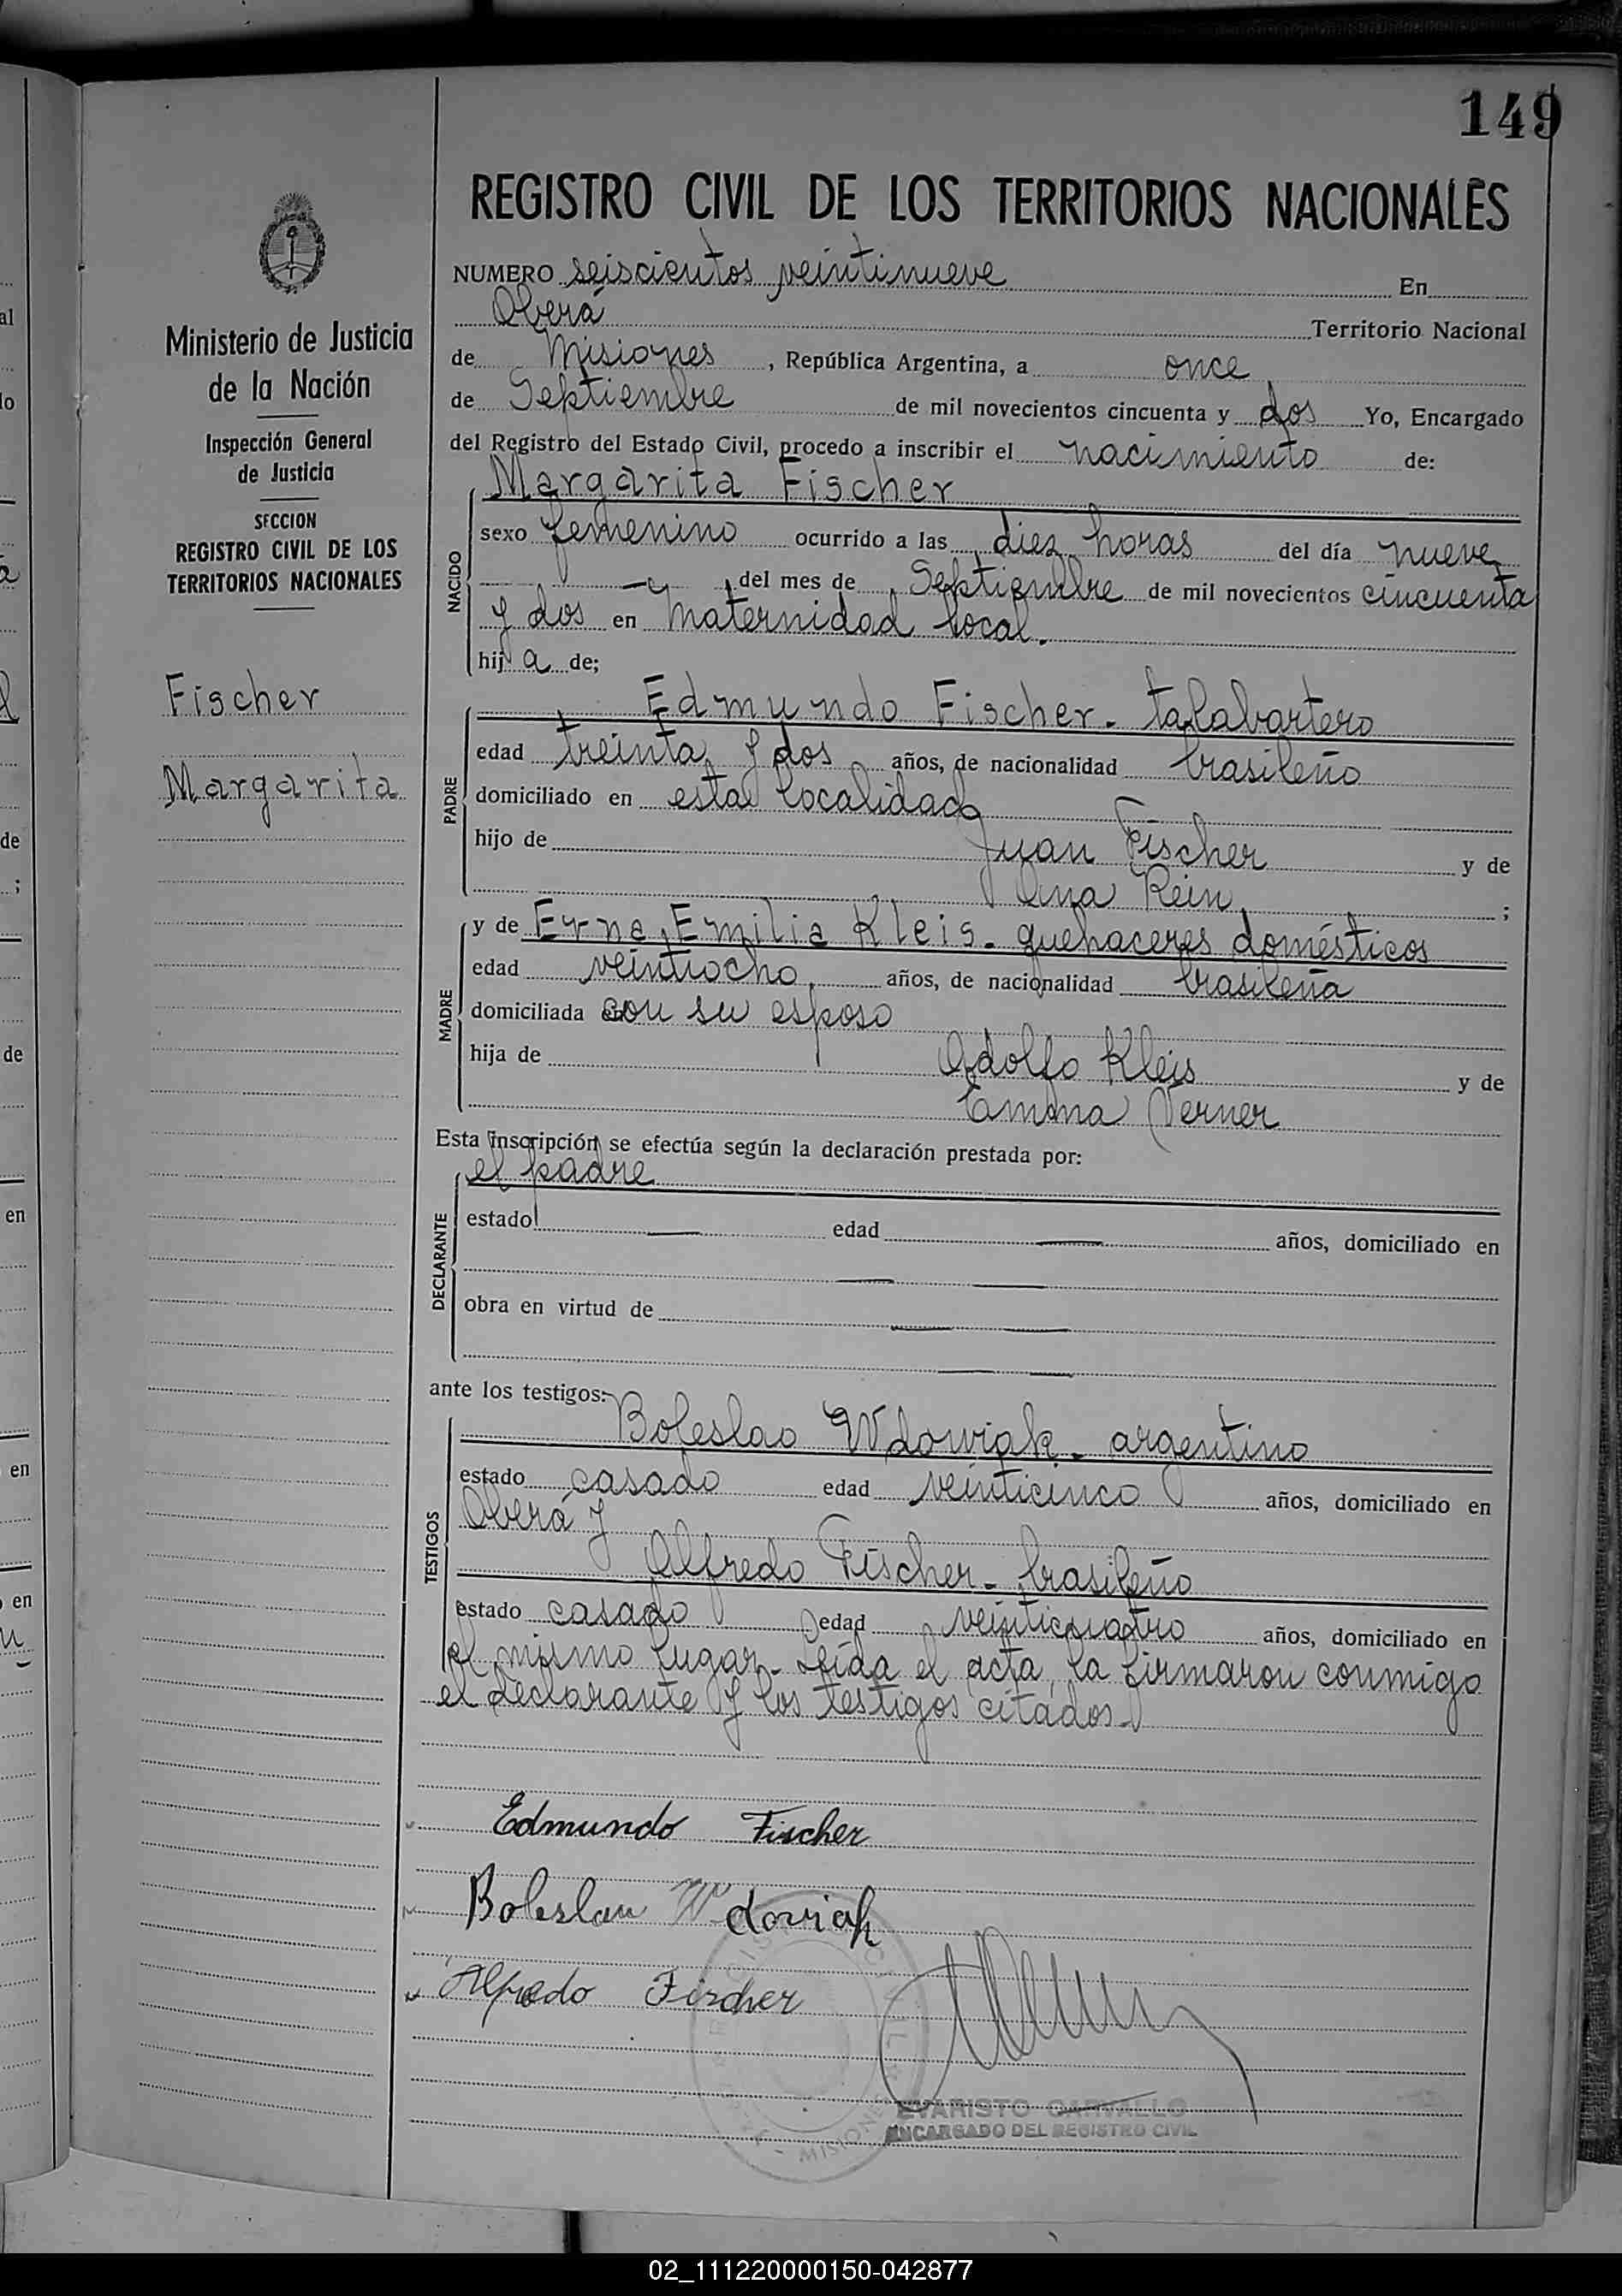 149
REGISTRO CIVIL DE LOS TERRITORIOS NACIONALES
Ministerio de Justicia
de la Nación
Inspección General
de Justicia
SECCION
REGISTRO CIVIL DE LOS
TERRITORIOS NACIONALES
Fischer
Margarita
NUMERO seiscientos veintinueve En
Oberá Territorio Nacional
de Misiones, República Argentina, a once
de Septiembre de mil novecientos cincuenta y dos Yo, Encargado
del Registro del Estado Civil, procedo a inscribir el nacimiento de:
Margarita Fischer
NACIDO
sexo femenino ocurrido a las diez horas del día nueve
del mes de Septiembre de mil novecientos cincuenta
y dos en Maternidad local.
hija de;
Edmundo Fischer - talabartero
PADRE
edad treinta y dos años, de nacionalidad brasileño
domiciliado en esta localidad
hijo de Juan Fischer y de
Ana Rein ;
y de Erna Emilia Kleis - quehaceres domésticos
MADRE
edad veintiocho años, de nacionalidad brasileña
domiciliada en con su esposo
hija de Adolfo Kleis y de
Emma Verner
Esta inscripción se efectúa según la declaración prestada por:
el padre
DECLARANTE
estado — edad — años, domiciliado en
— —
obra en virtud de — —
— —
ante los testigos:
Boleslao Wdowiak - argentino
TESTIGOS
estado casado edad veinticinco años, domiciliado en
Oberá y
Alfredo Fischer - brasileño
estado casado edad veinticuatro años, domiciliado en
el mismo lugar - Leída el acta, la firmaron conmigo
el declarante y los testigos citados -
Edmundo Fischer
Boleslau Wdoviak
Alfredo Fischer
EVARISTO CARVALLO
ENCARGADO DEL REGISTRO CIVIL
MISIONES
al
lo
de
;
de
en
en
en
02_111220000150-042877